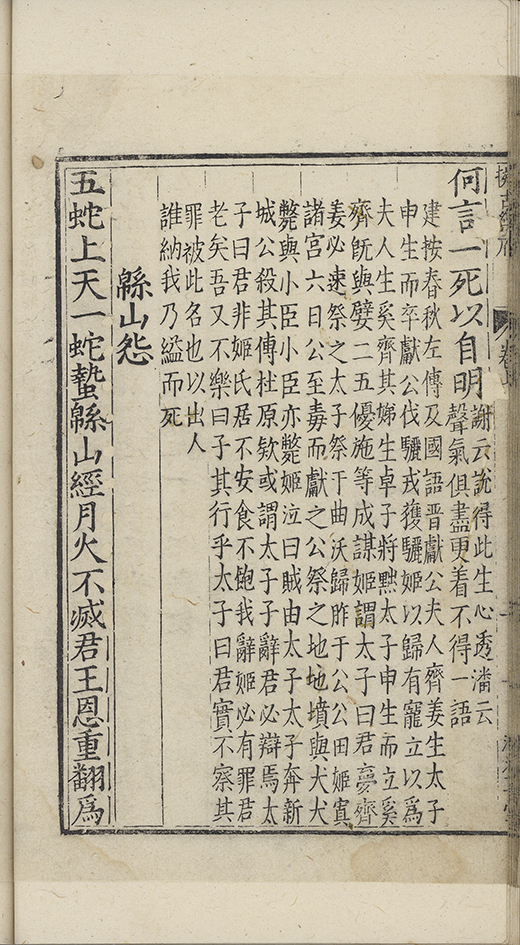 何言一死以自明
謝云說得此生心透潘云
聲氣俱盡更着不得一語
建按春秋左傳及國語晉獻公夫人齊姜生太子
申生而卒獻公伐驪戎獲驪姬以歸有寵立以爲
夫人生奚齊其娣生卓子將黜太子申生而立奚
齊旣與嬖二五優施等成謀姬謂太子曰君夢齊
姜必速祭之太子祭于曲沃歸胙于公公田姬寘
諸宮六日公至毒而獻之公祭之地地墳與犬犬
斃與小臣小臣亦斃姬泣曰賊由太子太子奔新
城公殺其傅杜原欵或謂太子子辭君必辯焉太
子曰君非姬氏居不安食不飽我辭姬必有罪君
老矣吾又不樂曰子其行乎太子曰君實不察其
罪被此名也以出人
誰納我乃縊而死
緜山怨
五蛇上天一蛇蟄緜山經月火不滅君王恩重翻爲